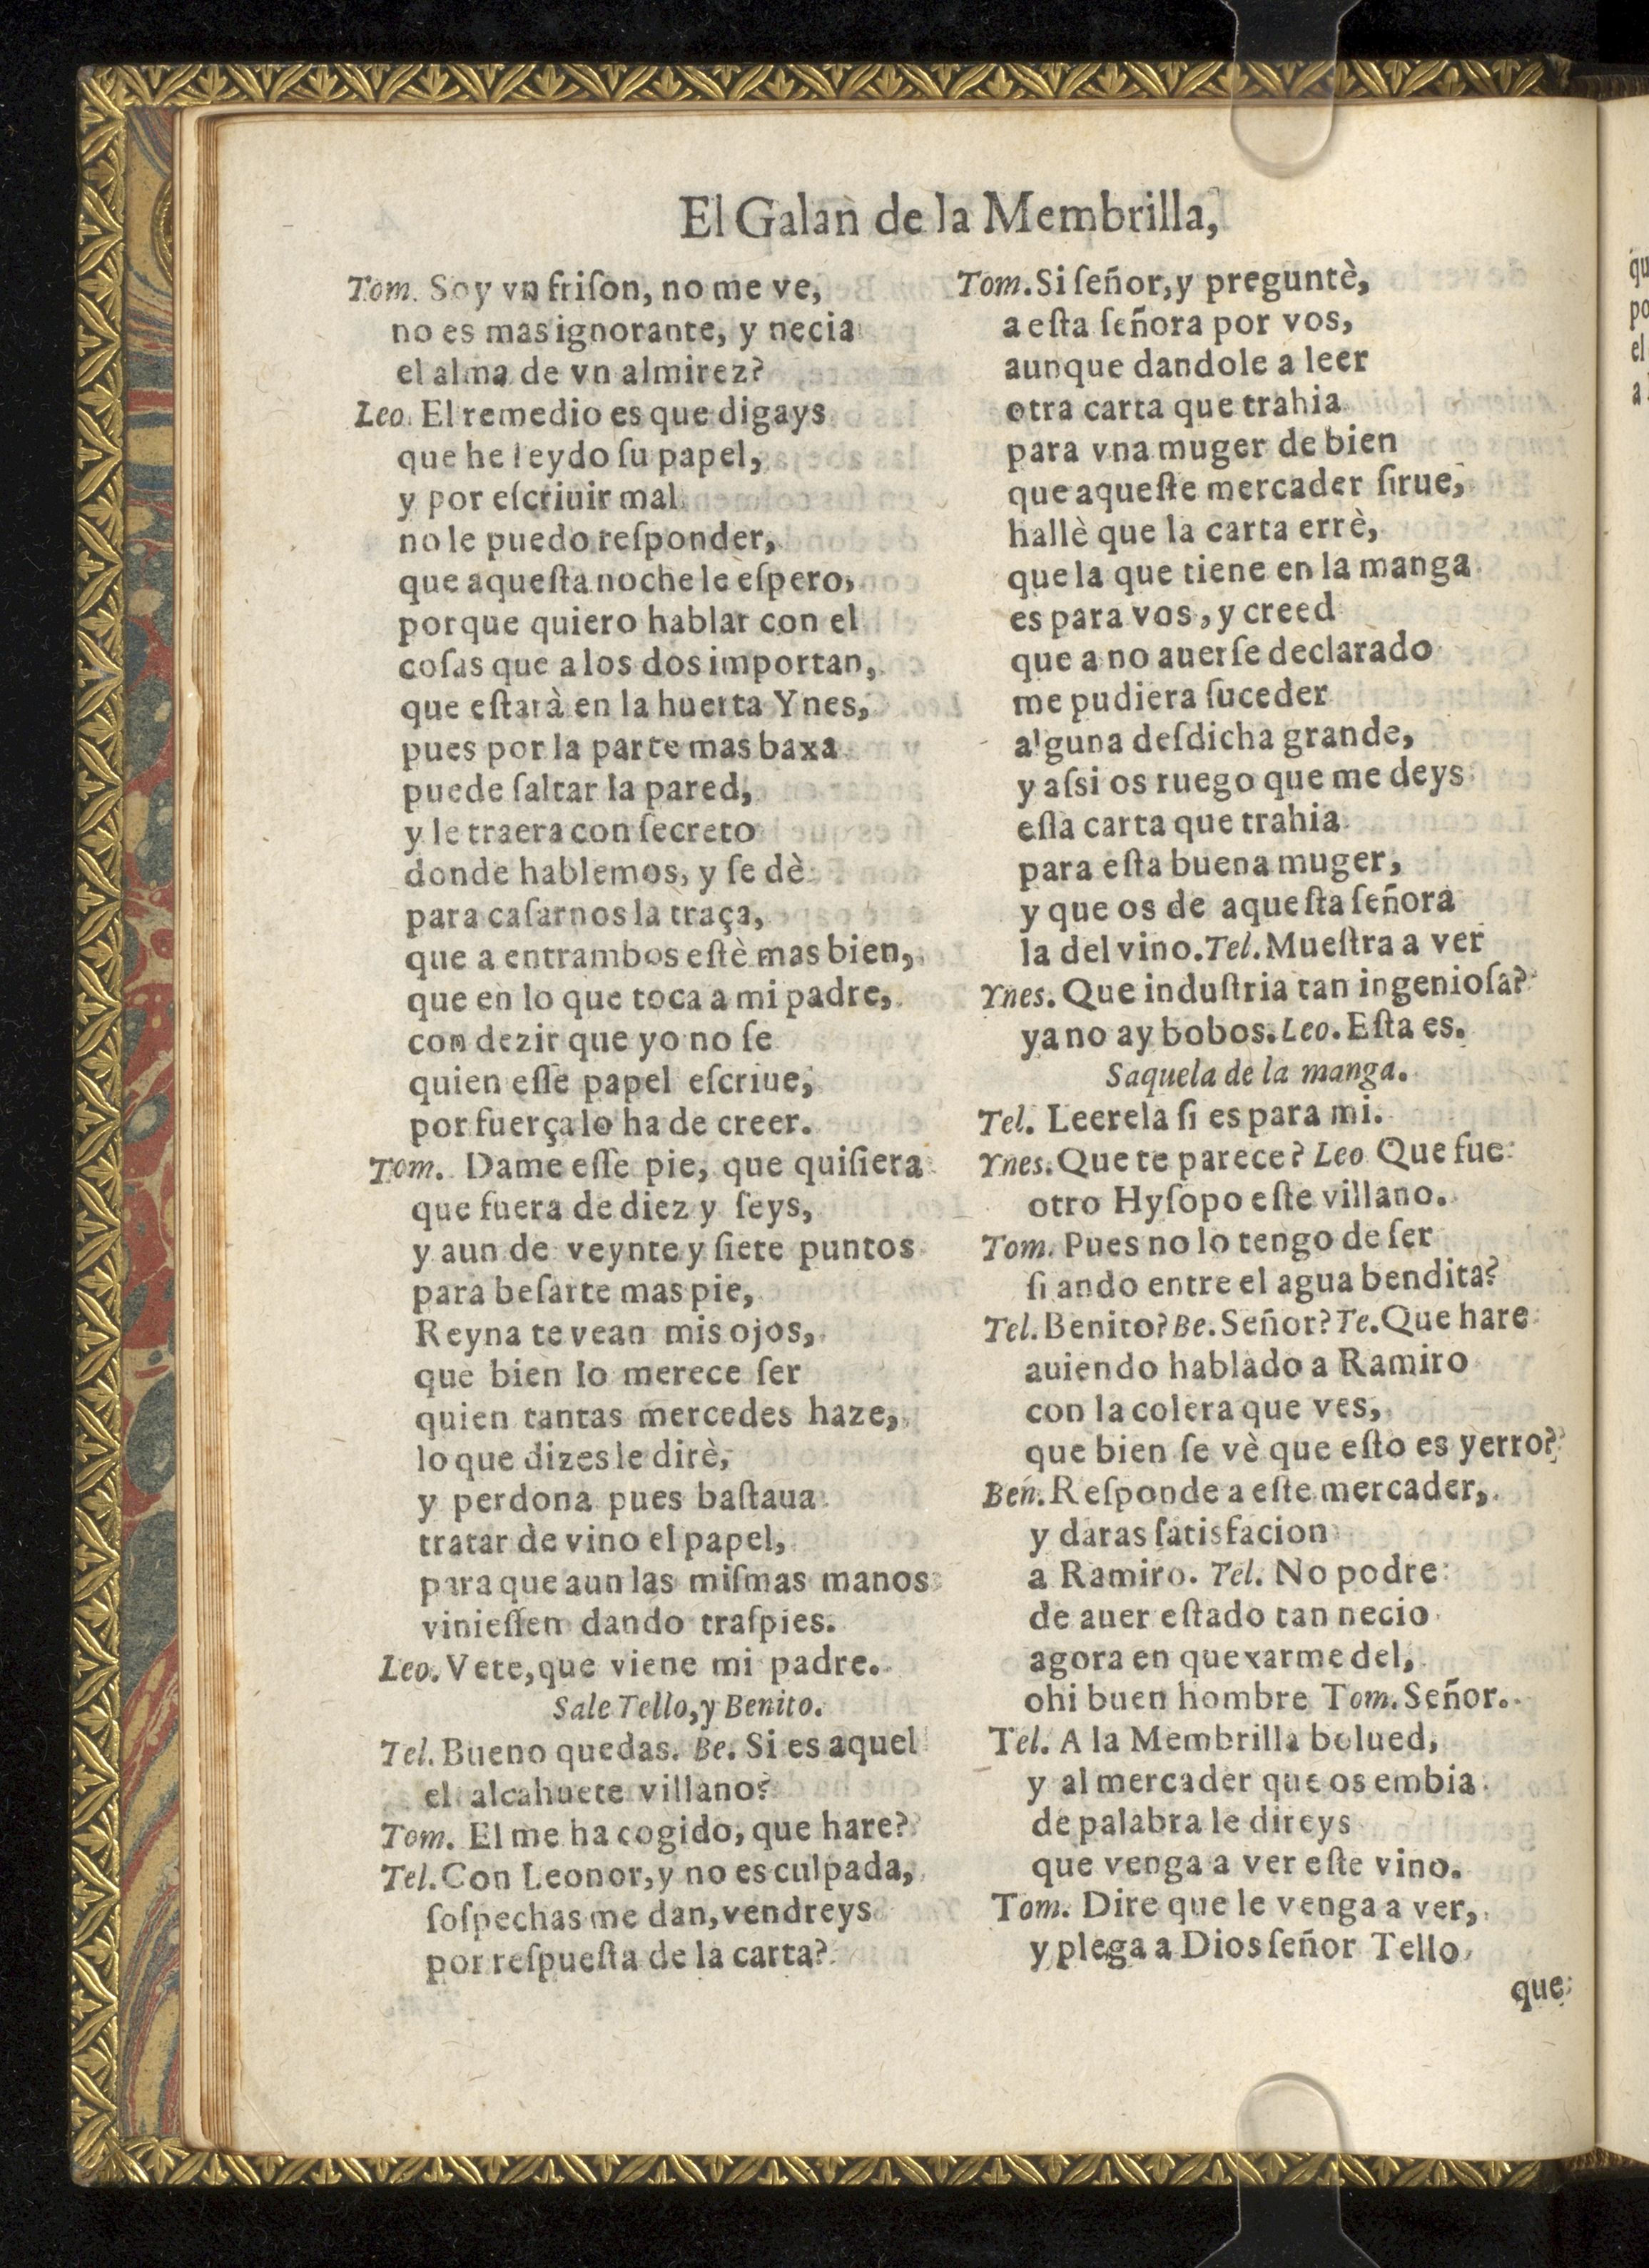 El Galan de la Membrilla,
Tom. Soy vn friſon, no me ve,
no es mas ignorante, y necia
el alma de vn almirez?
Leo. El remedio es que digays
que he leydo ſu papel,
y por eſcriuir mal
no le puedo reſponder,
que aqueſta noche le eſpero,
porque quiero hablar con el
coſas que a los dos importan,
que eſtarà en la huerta Ynes,
pues por la parte mas baxa
puede ſaltar la pared,
y le traera con ſecreto
donde hablemos, y ſe dè
para caſarnos la traça,
que a entrambos eſtè mas bien,
que en lo que toca a mi padre,
con dezir que yo no ſe
quien eſſe papel eſcriue,
por fuerça lo ha de creer.
Tom. Dame eſſe pie, que quiſiera
que fuera de diez y ſeys,
y aun de veynte y ſiete puntos
para beſarte mas pie,
Reyna te vean mis ojos,
que bien lo merece ſer
quien tantas mercedes haze,
lo que dizes le dirè,
y perdona pues baſtaua
tratar de vino el papel,
para que aun las miſmas manos
vinieſſen dando traſpies.
Leo. Vete, que viene mi padre.
Sale Tello, y Benito.
Tel. Bueno quedas. Be. Si es aquel
el alcahuete villano?
Tom. El me ha cogido, que hare?
Tel. Con Leonor, y no es culpada,
ſoſpechas me dan, vendreys
por reſpueſta de la carta?
Tom. Si ſeñor, y preguntè,
a eſta ſeñora por vos,
aunque dandole a leer
otra carta que trahia
para vna muger de bien
que aqueſte mercader ſirue,
hallè que la carta errè,
que la que tiene en la manga
es para vos, y creed
que a no auerſe declarado
me pudiera ſuceder
alguna deſdicha grande,
y aſsi os ruego que me deys
eſſa carta que trahia
para eſta buena muger,
y que os de aqueſta ſeñora
la del vino. Tel. Mueſtra a ver
Ynes. Que induſtria tan ingenioſa?
ya no ay bobos. Leo. Eſta es.
Saquela de la manga.
Tel. Leerela ſi es para mi.
Ynes. Que te parece? Leo Que fue
otro Hyſopo eſte villano.
Tom. Pues no lo tengo de ſer
ſi ando entre el agua bendita?
Tel. Benito? Be. Señor? Te. Que hare
auiendo hablado a Ramiro
con la colera que ves,
que bien ſe vè que eſto es yerro?
Ben. Reſponde a eſte mercader,
y daras ſatisfacion
a Ramiro. Tel. No podre
de auer eſtado tan necio
agora en quexarme del,
ohi buen hombre Tom. Señor.
Tel. A la Membrilla bolued,
y al mercader que os embia
de palabra le direys
que venga a ver eſte vino.
Tom. Dire que le venga a ver,
y plega a Dios ſeñor Tello
que
qu
po
el
a